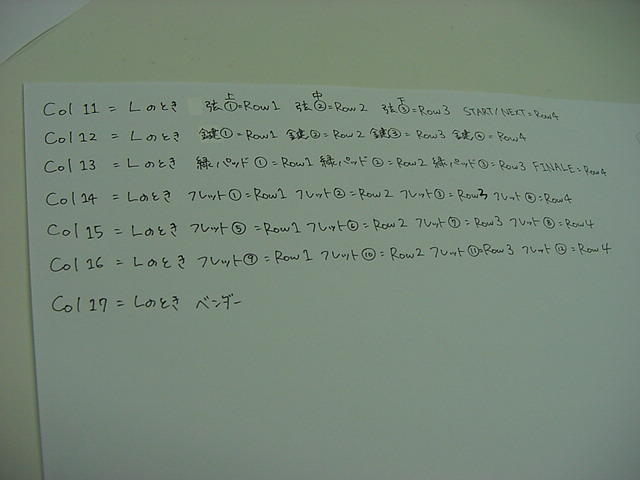 上 中 下
Col 11 = Lのとき 弦①=Row1 弦②=Row2 弦③=Row3 START/NEXT=Row4
Col 12 = Lのとき 鍵①=Row1 鍵②=Row2 鍵③=Row3 鍵④=Row4
Col 13 = Lのとき 緑パッド①=Row1 緑パッド②=Row2 緑パッド③=Row3 FINALE=Row4
Col 14 = Lのとき フレット①=Row1 フレット②=Row2 フレット③=Row3 フレット④=Row4
Col 15 = Lのとき フレット⑤=Row1 フレット⑥=Row2 フレット⑦=Row3 フレット⑧=Row4
Col 16 = Lのとき フレット⑨=Row1 フレット⑩=Row2 フレット⑪=Row3 フレット⑫=Row4
Col 17 = Lのとき ベンダー